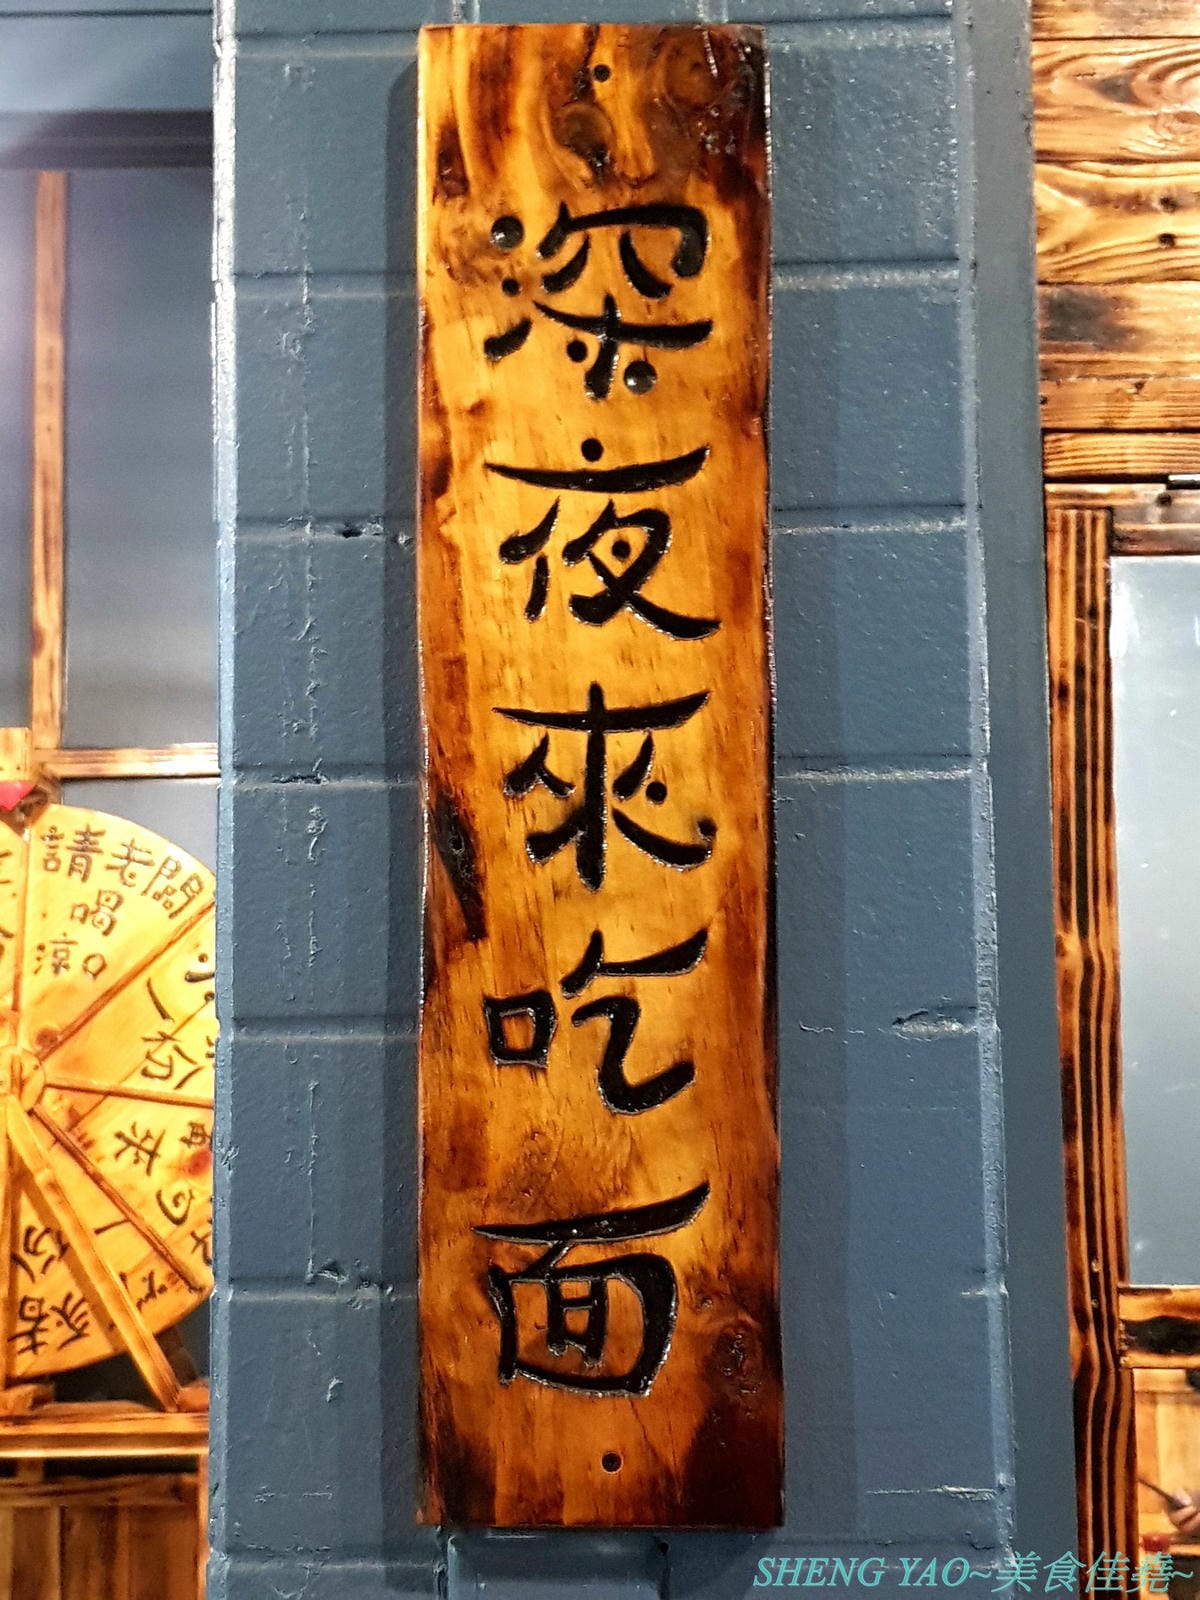 深夜來吃面
請老闆
喝
涼口
SHENG YAO~美食佳堯~